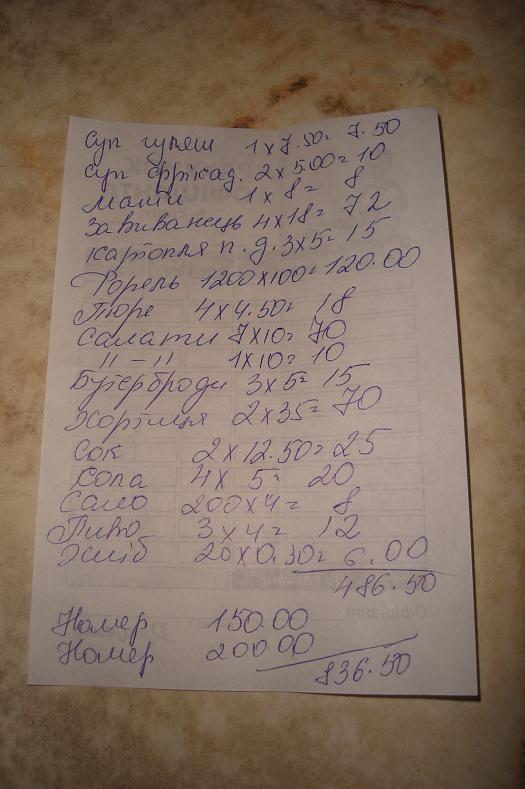 Суп гуляш 1 x 7.50= 7.50
Суп фрікад. 2 x 5.00= 10
Манти 1 x 8= 8
Завиванець 4x18= 72
Картопля п.д. 3x5= 15
Форель 1200x100=120.00
Пюре 4x4.50= 18
Салати 7x10= 70
"-" 1x10= 10
Бутерброди 3x5= 15
Хортиця 2x35= 70
Сок 2x12.50= 25
Кола 4x 5= 20
Сало 200x4= 8
Пиво 3x4= 12
Хліб 20x0.30= 6.00
486.50
Номер 150.00
Номер 200.00
836.50